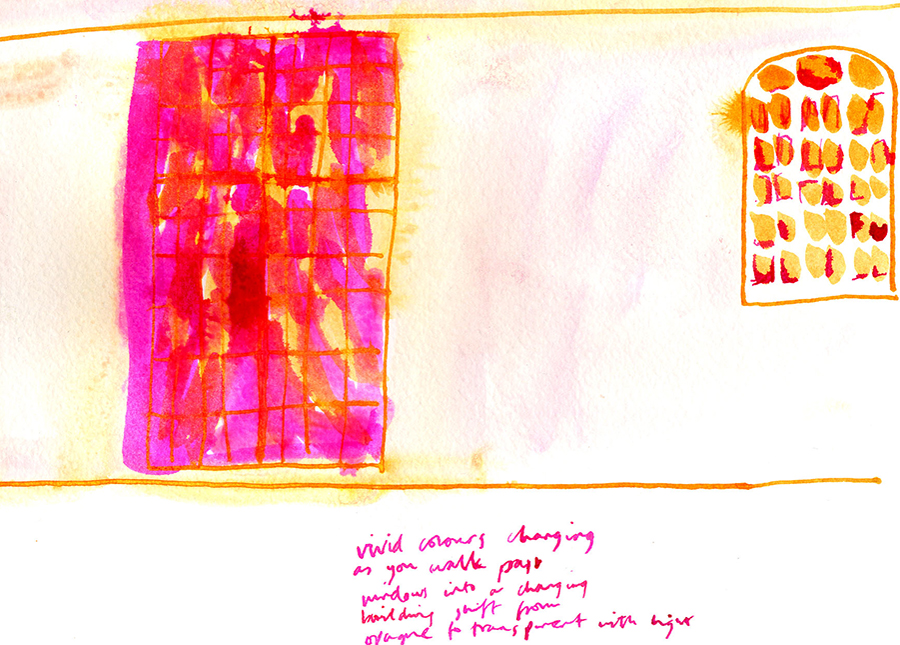 vivid colours changing
as you walk past
windows into a changing
building shift from
opaque to transparent with light